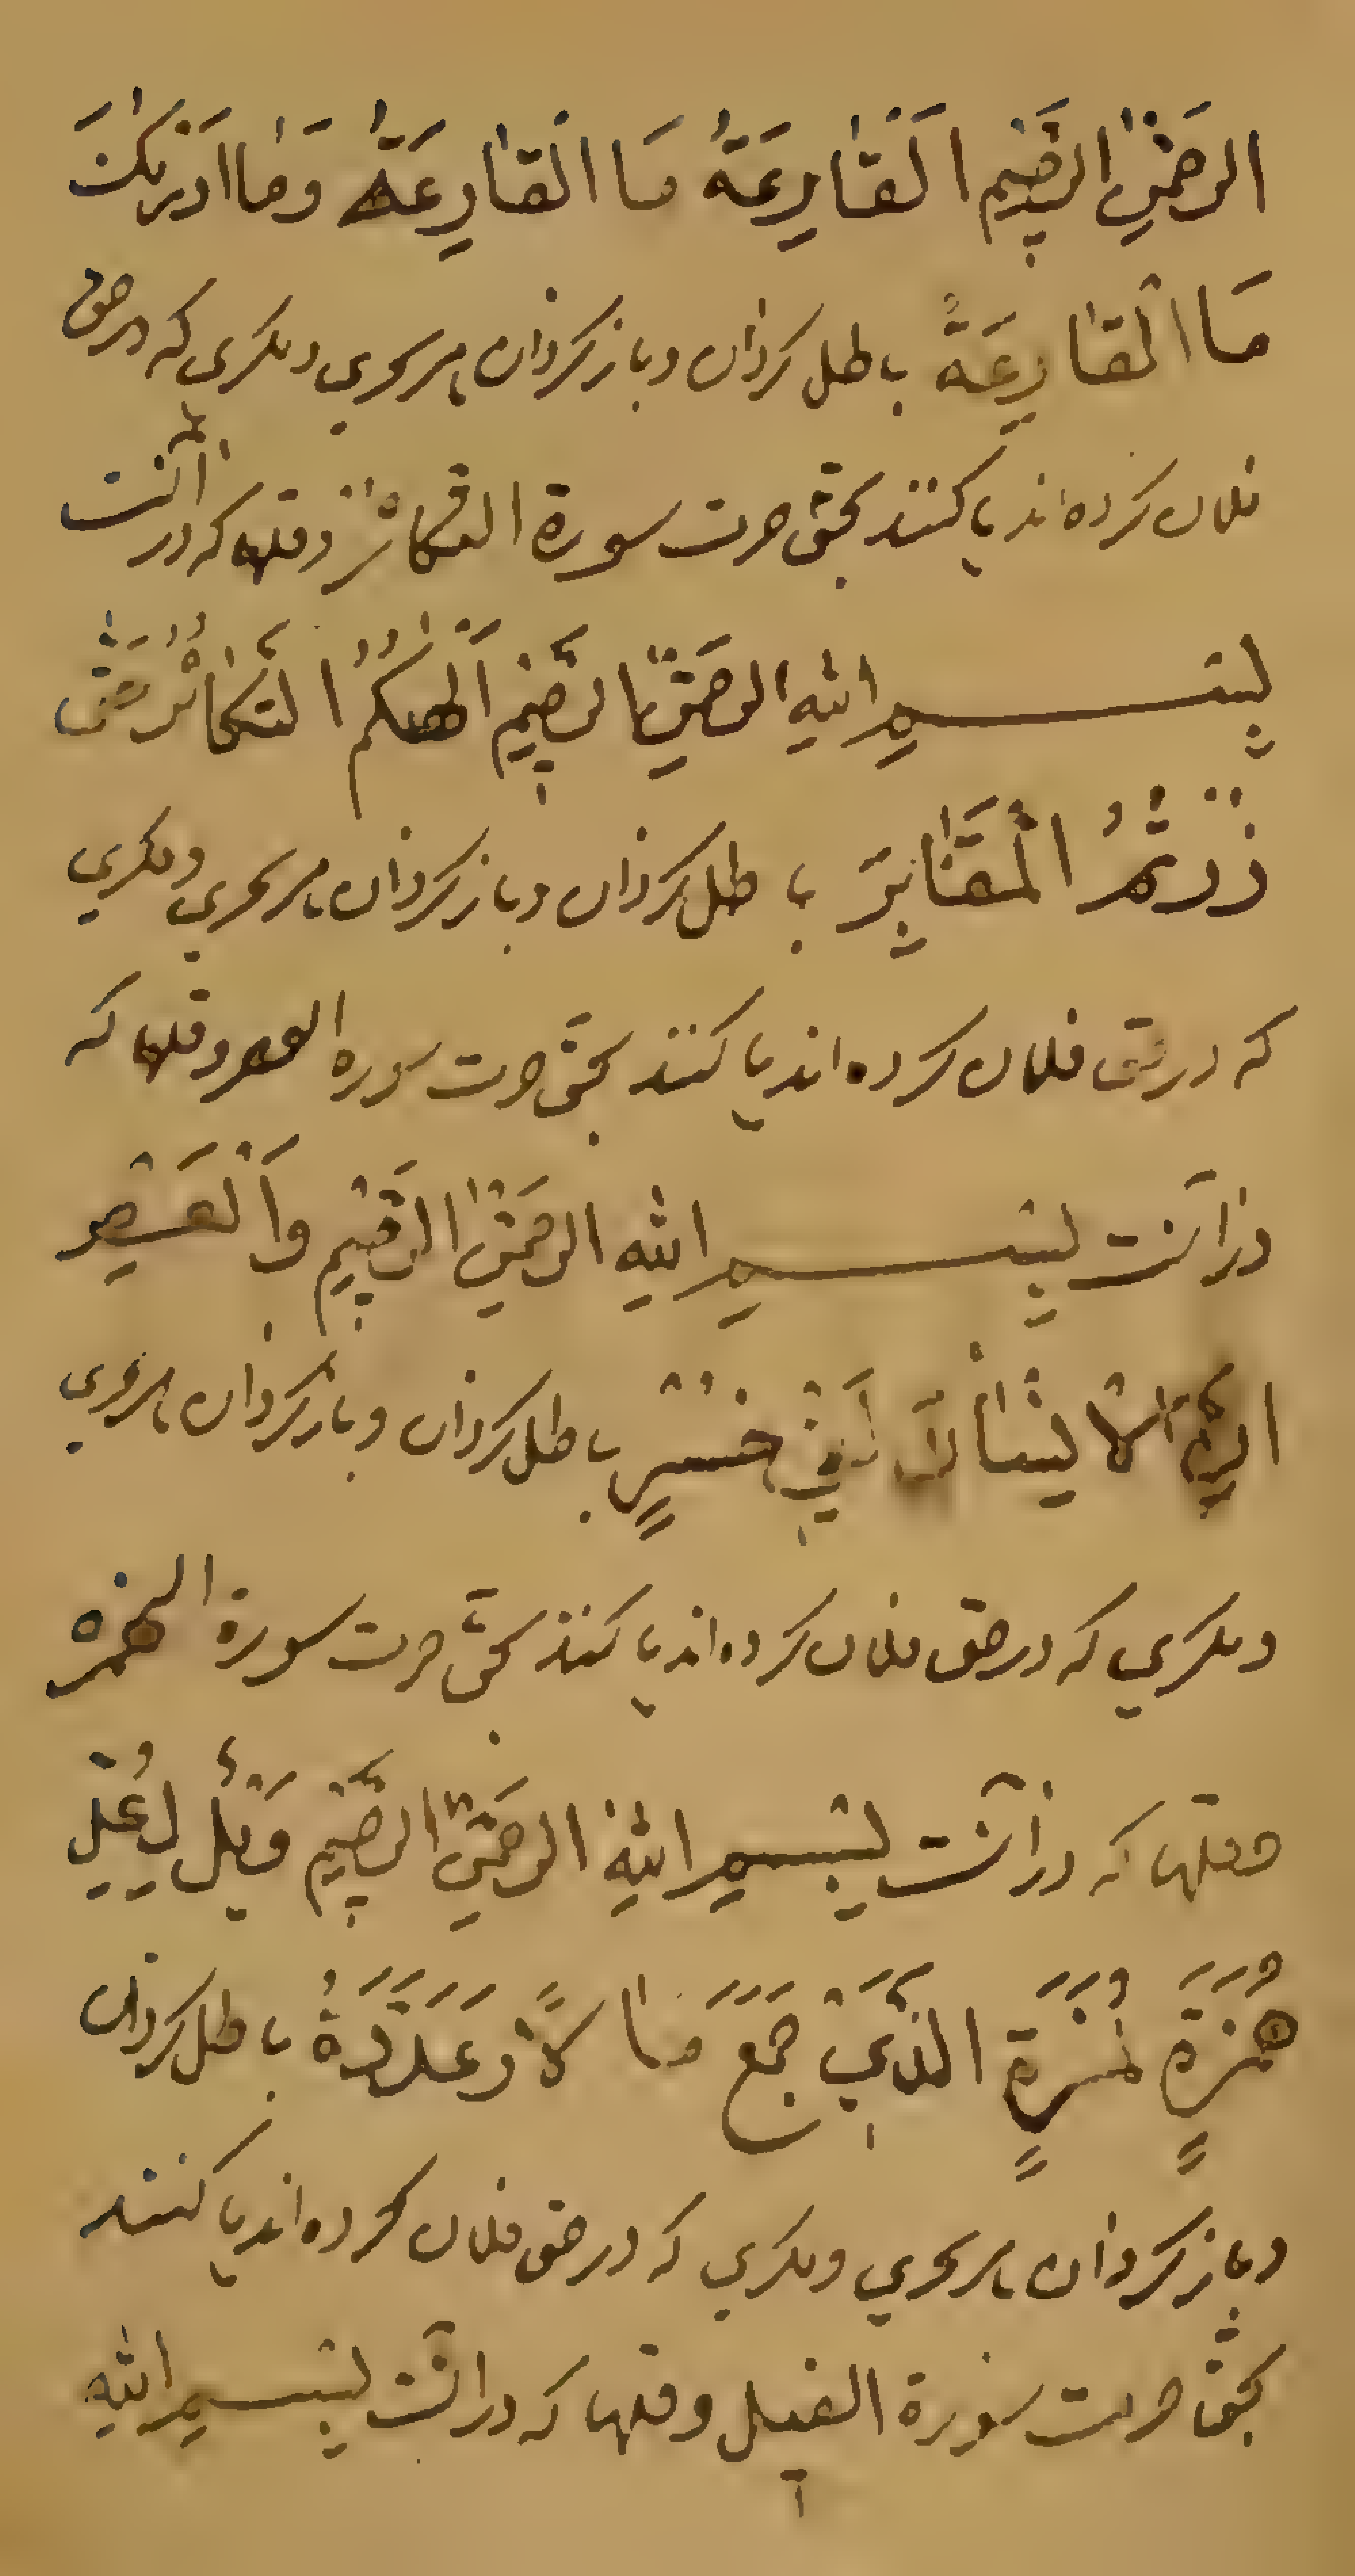 الرَّحْمٰنِ الرَّحِيمِ اَلْقَارِعَةُ مَا الْقَارِعَةُ وَمَا اَدْرٰىكَ
مَا الْقَارِعَةُ باطل کردان و بازکردان هر سحری و مکری که در حق
فلان کرده‌اند یا کنند بحق حرمت سورة التکاثر و فضلها که در آنست
بِسْمِ اللهِ الرَّحْمٰنِ الرَّحِيمِ اَلْهٰكُمُ التَّكَاثُرُ حَتّٰى
زُرْتُمُ الْمَقَابِرَ باطل کردان و بازکردان هر سحری و مکری
که در حق فلان کرده‌اند یا کنند بحق حرمت سوره العصر و فضلها که
در آنست بِسْمِ اللهِ الرَّحْمٰنِ الرَّحِيمِ وَالْعَصْرِ
اِنَّ الْاِنْسَانَ لَفِي خُسْرٍ باطل کردان و بازکردان هر سحری
و مکری که در حق فلان کرده‌اند یا کنند بحق حرمت سورة الهمزه
که در آنست بِسْمِ اللهِ الرَّحْمٰنِ الرَّحِيمِ وَيْلٌ لِكُلِّ
هُمَزَةٍ لُمَزَةٍ الَّذِي جَمَعَ مَالًا وَعَدَّدَهُ باطل کردان
و بازکردان هر سحری و مکری که در حق فلان کرده‌اند یا کنند
بحق حرمت سورة الفیل و فضلها که در آنست بِسْمِ اللهِ